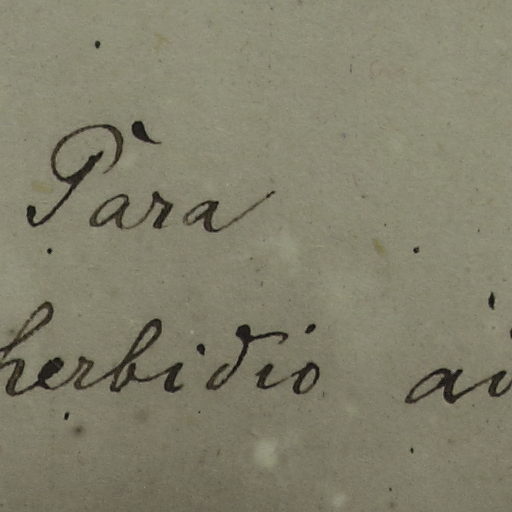 Pàra
herbidio